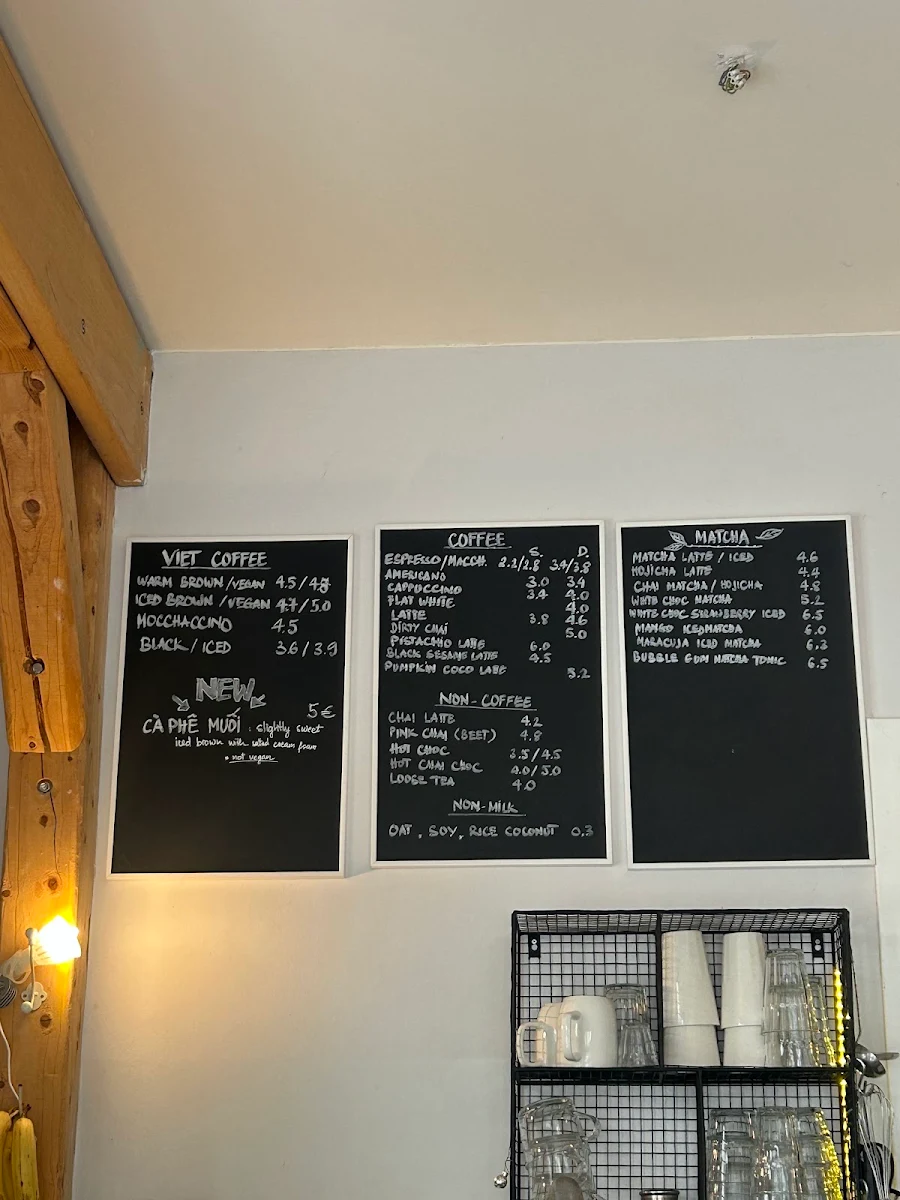 VIET COFFEE
WARM BROWN /VEGAN 4.5/4.8
ICED BROWN /VEGAN 4.7/5.0
MOCCHACCINO 4.5
BLACK / ICED 3.6 / 3.9
NEW
5€
CÀ PHÊ MUỐI : slightly sweet
iced brown with salted cream foam
• not vegan
COFFEE
S. D.
ESPRESSO/MACCH. 2.2/2.8 3.4/3.8
AMERICANO 3.0 3.4
CAPPUCCINO 3.4 4.0
FLAT WHITE 4.0
LATTE 3.8 4.6
DIRTY CHAI 5.0
PISTACHIO LATTE 6.0
BLACK SESAME LATTE 4.5
PUMPKIN COCO LATTE 5.2
NON-COFFEE
CHAI LATTE 4.2
PINK CHAI (BEET) 4.8
HOT CHOC 3.5/4.5
HOT CHAI CHOC 4.0/5.0
LOOSE TEA 4.0
NON-MILK
OAT, SOY, RICE COCONUT 0.3
MATCHA
MATCHA LATTE / ICED 4.6
HOJICHA LATTE 4.4
CHAI MATCHA / HOJICHA 4.8
WHITE CHOC MATCHA 5.2
WHITE CHOC STRAWBERRY ICED 6.5
MANGO ICED MATCHA 6.0
MARACUJA ICED MATCHA 6.3
BUBBLE GUM MATCHA TONIC 6.5
3